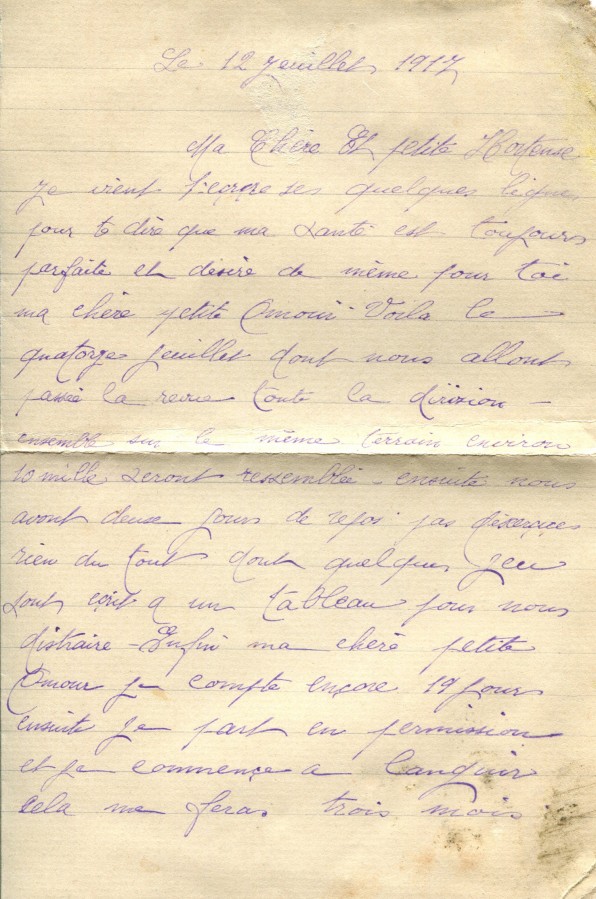 Le 12 Jeuillet 1917
Ma Chère Et petite Hortense
Je vient t'ecrçre ses quelques lignes
pour te dire que ma santé est toujours
parfaite et désire de même pour toi
ma chère petite Omour Voila le
quatorze jeuillet dont nous allont
passé la revue toute la divizion -
ensemble sur le même terrain environ
10 mille seront ressemblée - ensuite nous
avont deuse jours de repos pas d'exerçiçes
rien du tout dont quelques jeu
sont a un tableau pour nous
distraire - Enfin ma chère petite
Omour je compte ençore 19 jours
ensuite je part en permission
et je commençe a languir
cela me feras trois mois